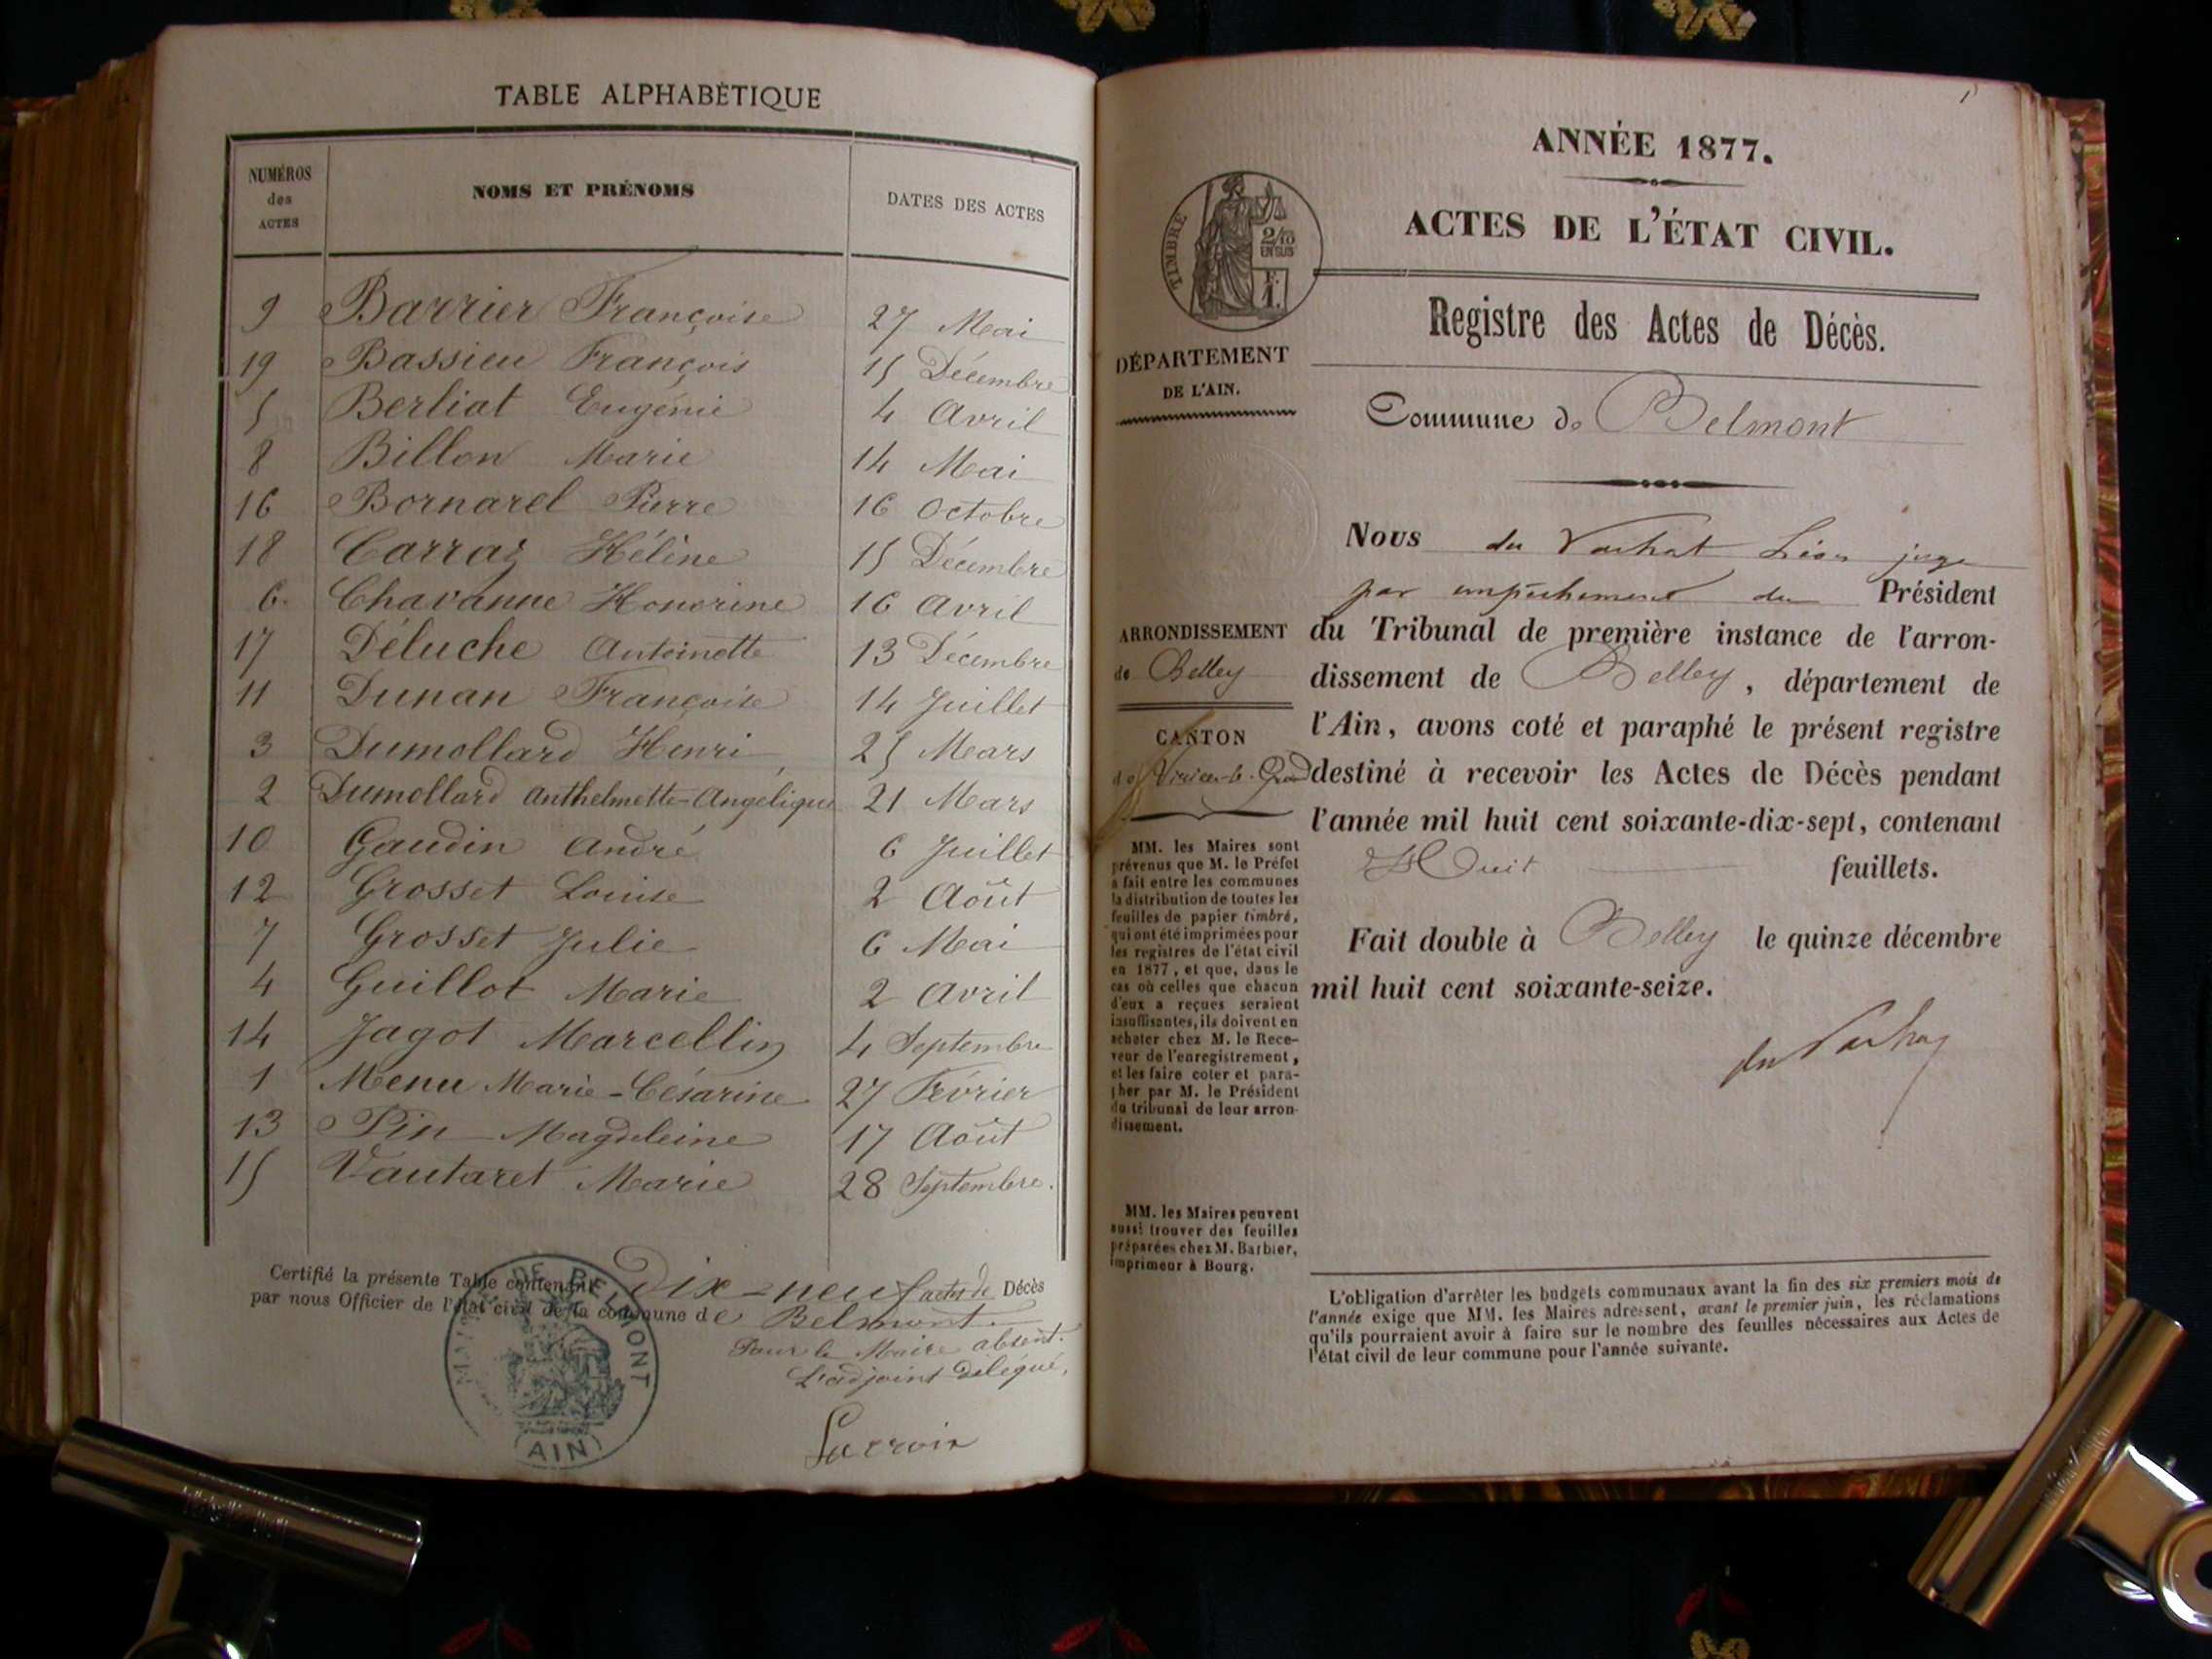 TABLE ALPHABÉTIQUE
NUMÉROS des ACTES NOMS ET PRÉNOMS DATES DES ACTES
9 Barrier Françoise 27 Mai
19 Bassieu François 15 Décembre
5 Berliat Eugénie 4 Avril
8 Billon Marie 14 Mai
16 Bornarel Pierre 16 Octobre
18 Carraz Héline 15 Décembre
6. Chavanne Honorine 16 Avril
17 Déluche Antoinette 13 Décembre
11 Dunan Françoise 14 Juillet
3 Dumollard Henri 25 Mars
2 Dumollard Anthelmette-Angélique 21 Mars
10 Gaudin André 6 Juillet
12 Grosset Louise 2 Août
7 Grosset Julie 6 Mai
4 Guillot Marie 2 Avril
14 Jagot Marcellin 4 Septembre
1 Menu Marie-Césarine 27 Février
13 Pin Magdeleine 17 Août
15 Vautaret Marie 28 Septembre.
Certifié la présente Table contenant Dix-neuf actes de Décès
par nous Officier de l'état civil de la commune de Belmont.
Pour le Maire absent.
L'adjoint délégué,
Lacroix
DE BELMONT
(AIN)
1
ANNÉE 1877.
ACTES DE L'ÉTAT CIVIL.
TIMBRE
2/10
EN SUS
F.
1.
Registre des Actes de Décès.
DÉPARTEMENT
DE L'AIN.
Commune de Belmont
ARRONDISSEMENT
de Belley
CANTON
de Virieu-le-Grand
MM. les Maires sont
prévenus que M. le Préfet
a fait entre les communes
la distribution de toutes les
feuilles de papier timbré,
qui ont été imprimées pour
les registres de l'état civil
en 1877, et que, dans le
cas où celles que chacun
d'eux a reçues seraient
insuffisantes, ils doivent en
acheter chez M. le Rece-
veur de l'enregistrement,
et les faire coter et para-
pher par M. le Président
du tribunal de leur arron-
dissement.
MM. les Maires peuvent
aussi trouver des feuilles
préparées chez M. Barbier,
imprimeur à Bourg.
Nous du Vachat Léon juge
par empêchement du Président
du Tribunal de première instance de l'arron-
dissement de Belley, département de
l'Ain, avons coté et paraphé le présent registre
destiné à recevoir les Actes de Décès pendant
l'année mil huit cent soixante-dix-sept, contenant
Huit feuillets.
Fait double à Belley le quinze décembre
mil huit cent soixante-seize.
du Vachat
L'obligation d'arrêter les budgets communaux avant la fin des six premiers mois de
l'année exige que MM. les Maires adressent, avant le premier juin, les réclamations
qu'ils pourraient avoir à faire sur le nombre des feuilles nécessaires aux Actes de
l'état civil de leur commune pour l'année suivante.